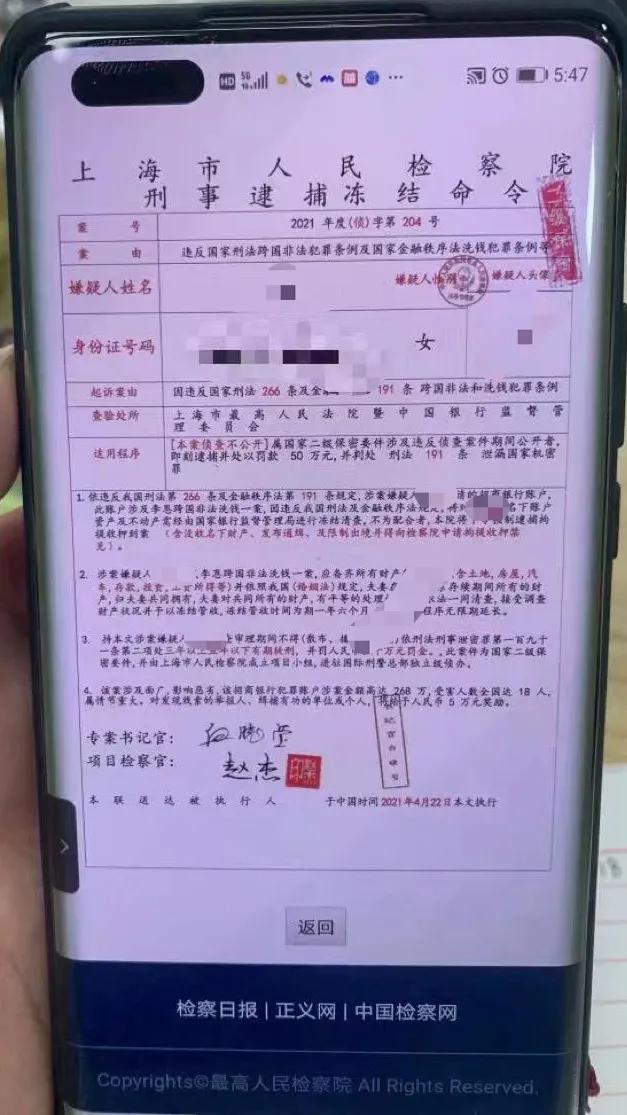 HD 5G 5:47
上海市人民检察院
刑事逮捕冻结命令
案号 2021 年度(侦)字第 204 号
案由 违反国家刑法跨国非法犯罪条例及国家金融秩序法洗钱犯罪条例等
嫌疑人姓名 嫌疑人性别 嫌疑人头像
身份证号码 女
起诉案由 因违反国家刑法 266 条及金 191 条 跨国非法和洗钱犯罪条例
查验处所 上海市最高人民法院暨中国银行监督管
理委员会
适用程序 [本案侦查不公开]属国家二级保密要件涉及违反侦查案件期间公开者,
即刻逮捕并处以罚款 50 万元,并判处 刑法 191 条 泄漏国家机密
罪
1. 依违反我国刑法第 266 条及金融秩序法第 191 条规定,涉案嫌疑人 招商银行账户,
此账户涉及李恩跨国非法洗钱一案,因违反我国刑法及金融秩序法规定, 名下账户
资产及不动产需经由国家银行监督管理局进行冻结清查,不为配合者,本院将 强制逮捕拘
提收押到案 (含没收名下财产、发布通缉、及限制出境并得向检察院申请拘提收押禁
见)。
2. 涉案嫌疑人 李恩跨国非法洗钱一案,应备齐所有财产 含土地,房屋,汽
车,存款,投资, 所得等)并依照我国(婚姻法)规定,夫妻 存续期间所有的财
产,归夫妻共同拥有,夫妻对共同所有的财产,有平等的处理 依法一同清查,接受调查
财产状况并予以冻结管收,冻结管收时间为期一年六个月 程序无限期延长。
3. 持本文涉案嫌疑人 上审理期间不得(散布、 依刑法刑事泄密罪第一百九十
一条第二项处三年以上五年以下有期徒刑,并罚人民 万元罚金。,此案件为国家二级保
密要件,并由上海市人民检察院成立项目小组,进驻国际刑警总部独立级侦办。
4. 该案涉及面广,影响恶劣,该招商银行犯罪账户涉案金额高达 268 万,受害人数全国达 18 人,
属情节重大。对发现线索的举报人、缉捕有功的单位或个人, 予人民币 5 万元奖励。
专案书记官:
项目检察官: 赵杰
本联送达被执行人 于中国时间 2021年4月22日本文执行
返回
检察日报 | 正义网 | 中国检察网
Copyrights©最高人民检察院 All Rights Reserved.